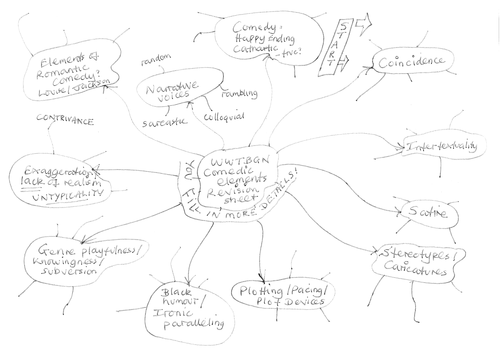 Comedy:
Happy Ending
Cathartic
-true!
START
Coincidence
Intertextuality
Satire
Stereotypes/
Caricatures
Plotting/Pacing/
Plot Devices
Black
humour/
Ironic
paralleling
Genre playfulness/
Knowingness/
subversion
CONTRIVANCE
Exaggeration/
lack of realism
UNTYPICALITY
Elements of
Romantic
Comedy:
Louise/Jackson
random
Narrative
voices
rambling
sarcastic
colloquial
WWTBGN
Comedic
elements
Revision
sheet
YOU FILL IN MORE DETAILS!